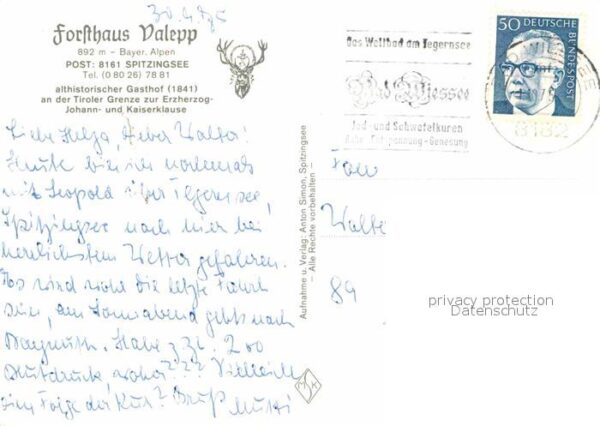 30.9.75
Forsthaus Valepp
892 m – Bayer. Alpen
POST: 8161 SPITZINGSEE
Tel. (0 80 26) 78 81
althistorischer Gasthof (1841)
an der Tiroler Grenze zur Erzherzog-
Johann- und Kaiserklause
Liebe Helga, lieber Walter!
Heute bin ich nochmals
mit Leopold über Tegernsee,
Spitzingsee nach hier bei
herrlichstem Wetter gefahren.
Das wird wohl die letzte Fahrt
sein, am Sonnabend gehts nach
Bayreuth. Habe z.Zt. 200
Blutdruck, woher??? Vielleicht
eine Folge der Kur? Gruß Mutti
Aufnahme u. Verlag: Anton Simon, Spitzingsee
– Alle Rechte vorbehalten –
MSK
Das Weltbad am Tegernsee
Bad Wiessee
Jod- und Schwefelkuren
Ruhe - Entspannung - Genesung
50 DEUTSCHE
BUNDESPOST
WIESSEE
8182
Walte
89
privacy protection
Datenschutz